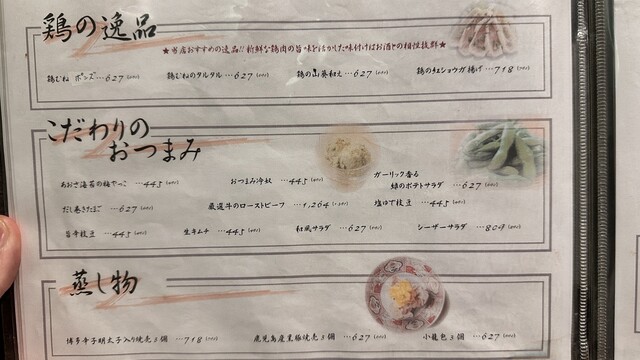 鶏の逸品
★当店おすすめの逸品!! 新鮮な鶏肉の旨味を活かした味付けはお酒との相性抜群★
鶏むね ポンズ…627 鶏むねのタルタル…627 鶏の山葵和え…627 鶏の紅ショウガ揚げ…718
こだわりの
おつまみ
あおさ海苔の梅やっこ …445 おつまみ冷奴 …445 ガーリック香る
緑のポテトサラダ …627
だし巻きたまご …627 厳選牛のローストビーフ …1,264 塩ゆで枝豆 …445
旨辛枝豆 …445 生キムチ …445 和風サラダ …627 シーザーサラダ …809
蒸し物
博多辛子明太子入り焼売3個 …718 鹿児島産黒豚焼売3個 …627 小籠包3個 …627